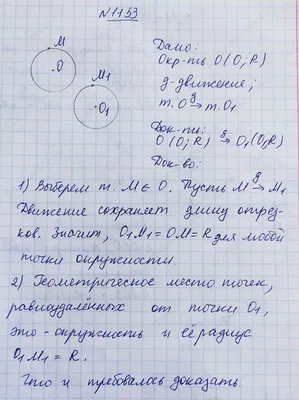 №1153
M
O
M₁
O₁
Дано:
Окр-ть O(O; R)
g-движение;
т.O →g т.O₁
Док-ть:
O(O; R) →g O₁(O₁R)
Док-во:
1) Выберем т. M ∈ O. Пусть M →g M₁
Движение сохраняет длину отрез-
ков. Значит, O₁M₁ = OM = R для любой
точки окружности.
2) Геометрическое место точек,
равноудалённых от точки O₁,
это - окружность и её радиус
O₁M₁ = R.
Что и требовалось доказать.